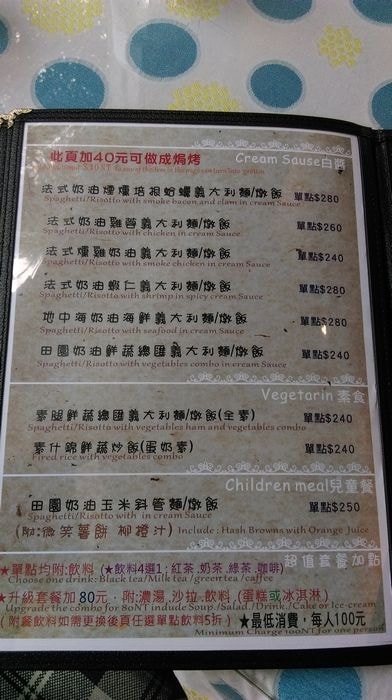 此頁加40元可做成焗烤 Cream Sause白醬
法式奶油煙燻培根蛤蠣義大利麵/燉飯 單點$280
Spaghetti/Risotto with smoke bacon and clam in cream Sauce
法式奶油雞蓉義大利麵/燉飯 單點$260
Spaghetti/Risotto with chicken in cream Sauce
法式燻雞奶油義大利麵/燉飯 單點$240
Spaghetti/Risotto with smoke chicken in cream Sauce
法式奶油蝦仁義大利麵/燉飯 單點$280
Spaghetti/Risotto with shrimp in spicy cream Sauce
地中海奶油海鮮義大利麵/燉飯 單點$280
Spaghetti/Risotto with seafood in cream Sauce
田園奶油鮮蔬總匯義大利麵/燉飯 單點$240
Spaghetti/Risotto with vegetables combo in cream Sauce
Vegetarin 素食
素腿鮮蔬總匯義大利麵/燉飯(全素) 單點$240
Spaghetti/Risotto with vegetables ham and vegetables combo
素什錦鮮蔬炒飯(蛋奶素) 單點$240
Fired rice with vegetables combo
Children meal兒童餐
田園奶油玉米斜管麵/燉飯 單點$250
Spaghetti/Risotto with in cream Sauce
(附:微笑薯餅 柳橙汁) Include : Hash Browns with Orange Juice
超值套餐加點
★單點均附:飲料 (★飲料4選1 : 紅茶.奶茶.綠茶.咖啡)
Choose one drink: Black tea/Milk tea/green tea/coffee
★升級套餐加 80元，附:濃湯.沙拉.飲料.(蛋糕或冰淇淋)
Upgrade the combo for 80NT indude Soup./Salad./Drink./Cake or Ice-cream
(附餐飲料如需更換後頁任選單點飲料5折) ★最低消費，每人100元
Minimum Charge 100NT for one person